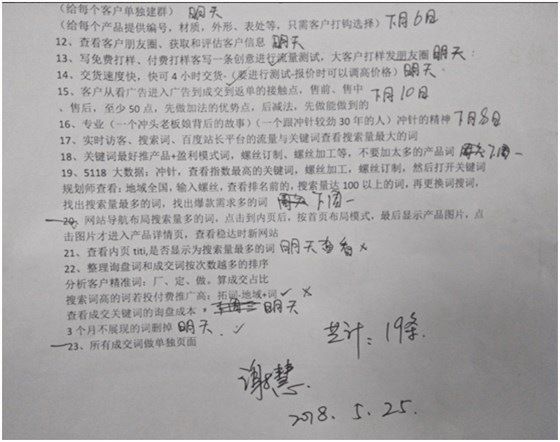 (给每个客户单独建群) 明天
(给每个产品提供编号，材质，外形、表处等，只需客户打钩选择) 下月6日
12、查看客户朋友圈、获取和评估客户信息 明天
13、写免费打样、付费打样客写一条创意进行流量测试，大客户打样发朋友圈 明天
14、交货速度快，快可4小时交货-(要进行测试-报价时可以调高价格) 明天
15、客户从看广告进入广告到成交到返单的接触点，售前、售中 下月10日
、售后，至少50点，先做加法的优势点，后减法，先做能做到的
16、专业（一个冲头老板娘背后的故事）（一个跟冲针较劲30年的人）冲针的精神 下月8日
17、实时访客、搜索词、百度站长平台的流量与关键词查看搜索量最大的词
18、关键词最好推产品+盈利模式词，螺丝订制、螺丝加工等，不要加太多的产品词 下周一
19、5118 大数据：冲针，查看指数最高的关键词，螺丝加工，螺丝订制，然后打开关键词
规划师查看：地域全国，输入螺丝，查看排名前的，搜索量达100以上的词，再更换词搜词，
找出搜索量最多的词，找出爆款需求多的词 下周一
20、网站导航布局搜索量多的词，点击到内页后，按首页布局模式，最后显示产品图片，点
击图片才进入产品详情页，查看稳达时新网站
21、查看内页 titi,是否显示为搜索量最多的词 明天查看 ×
22、整理询盘词和成交词按次数越多的排序
分析客户精准词：厂、定、做、算成交占比
搜索词高的词若投付费推广高：拓词-地域+词 ✓ ×
查看成交关键词的询盘成本， 明天
3个月不展现的词删掉 明天. ✓
23、所有成交词做单独页面
共计：19条
谢慧.
2018. 5. 25.